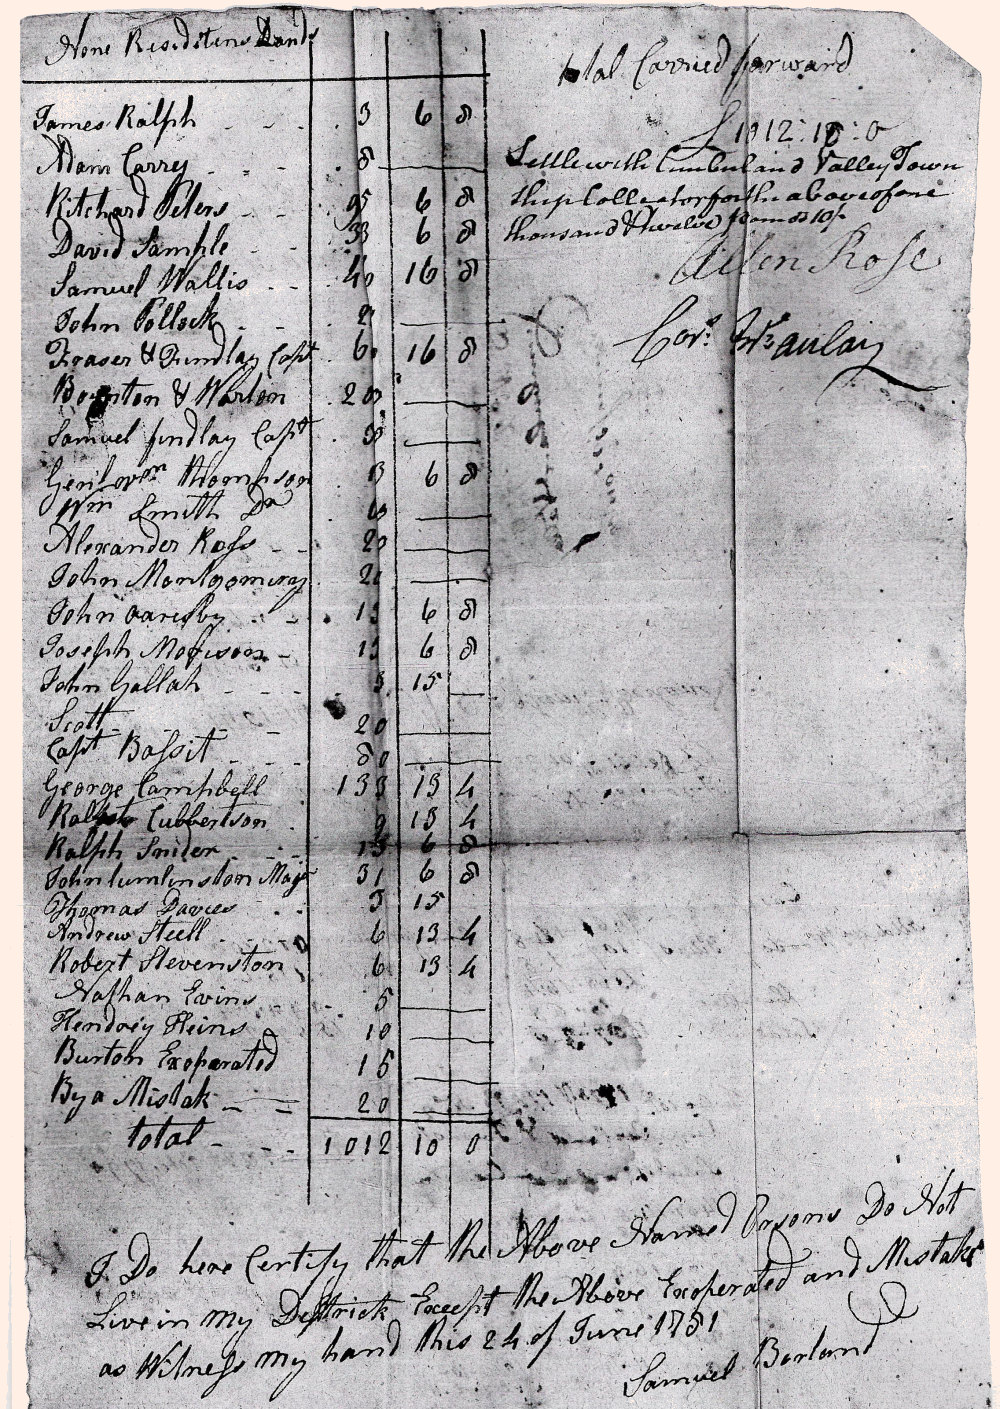 None Residitens Lands
James Ralph 3 6 8
Adam Carry 8
Ritchard Peters 95 6 8
David Sample 33 6 8
Samuel Wallis 40 16 8
John Pollock 2
Fraser & Findlay Capt 60 16 8
Boynton & Warton 200
Samuel findlay Capt 30
Genl Thompson 13 6 8
Wm Smith Dr
Alexander Ross 20
John Montgomeray 20
John 13 6 8
Joseph Morison 13 6 8
John Gallah 3 15
Scott 20
Capt Bassit 80
George Campbell 133 13 4
Ralph Cubbertson 9 13 4
Ralph Snider 13 6 8
John tumlinston Majr 31 6 8
Thomas Davies 3 15
Andrew Steell 6 13 4
Robert Stevenston 6 13 4
Nathan Evins 5
Hendrey Heins 10
Burton Exoperated 15
By a Mistak 20
total 1012 10 0
total Carried forward
£ 1012:10:0
Settle with Cumberland Valley Town
ship Collector for the above of one
thousand & twelve pounds 10/
Allen Rose
I Do here Certify that the Above Named Persons Do Not
Live in my Destrick Except the Above Exoperated and Mistake
as Witness my hand this 24 of June 1781
Samuel Borland